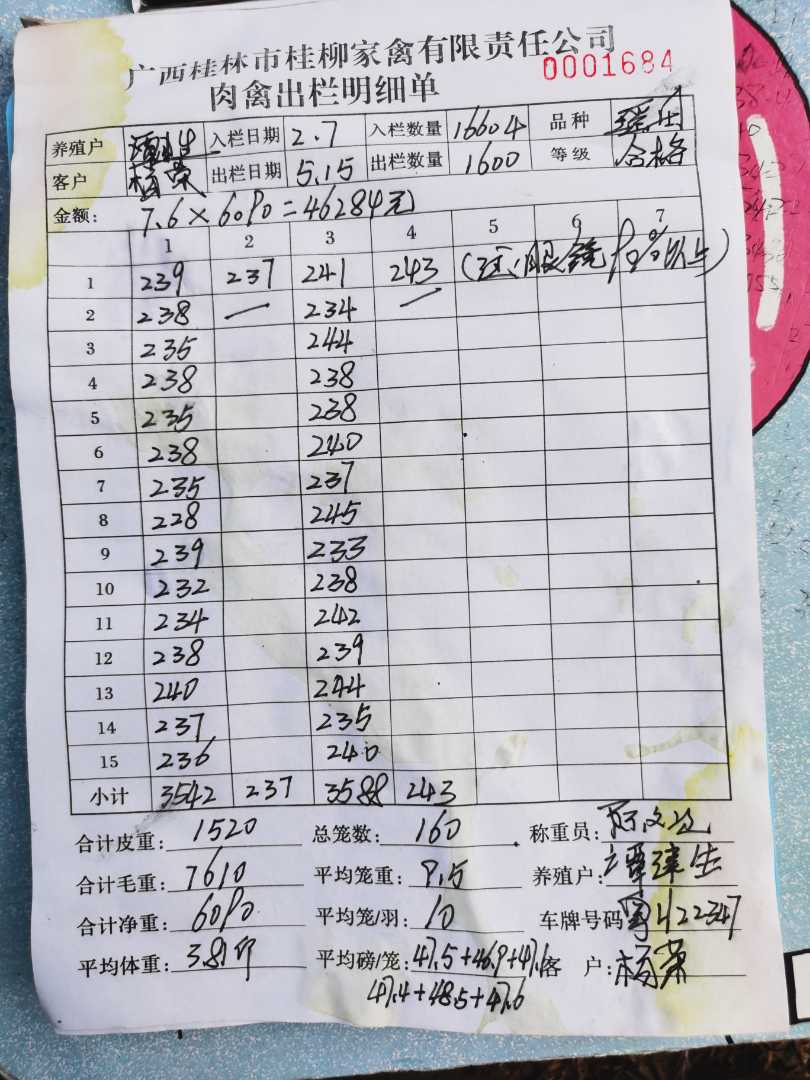 广西桂林市桂柳家禽有限责任公司
肉禽出栏明细单 0001684
养殖户 入栏日期 2.7 入栏数量 16604 品种
客户 杨荣 出栏日期 5.15 出栏数量 1600 等级 合格
金额: 7.6×6090=46284元
1 2 3 4 5 6 7
1 239 237 241 243
2 238 — 234 —
3 235 244
4 238 238
5 235 238
6 238 240
7 235 237
8 228 245
9 239 233
10 232 238
11 234 242
12 238 239
13 240 244
14 237 235
15 236 240
小计 3542 237 3588 243
合计皮重: 1520 总笼数: 160 称重员:
合计毛重: 7610 平均笼重: 9.5 养殖户: 潭建生
合计净重: 6090 平均笼/羽: 10 车牌号码
平均体重: 3.81斤 平均磅/笼: 47.5+46.9+47.6 客 户: 杨荣
47.4+48.5+47.6